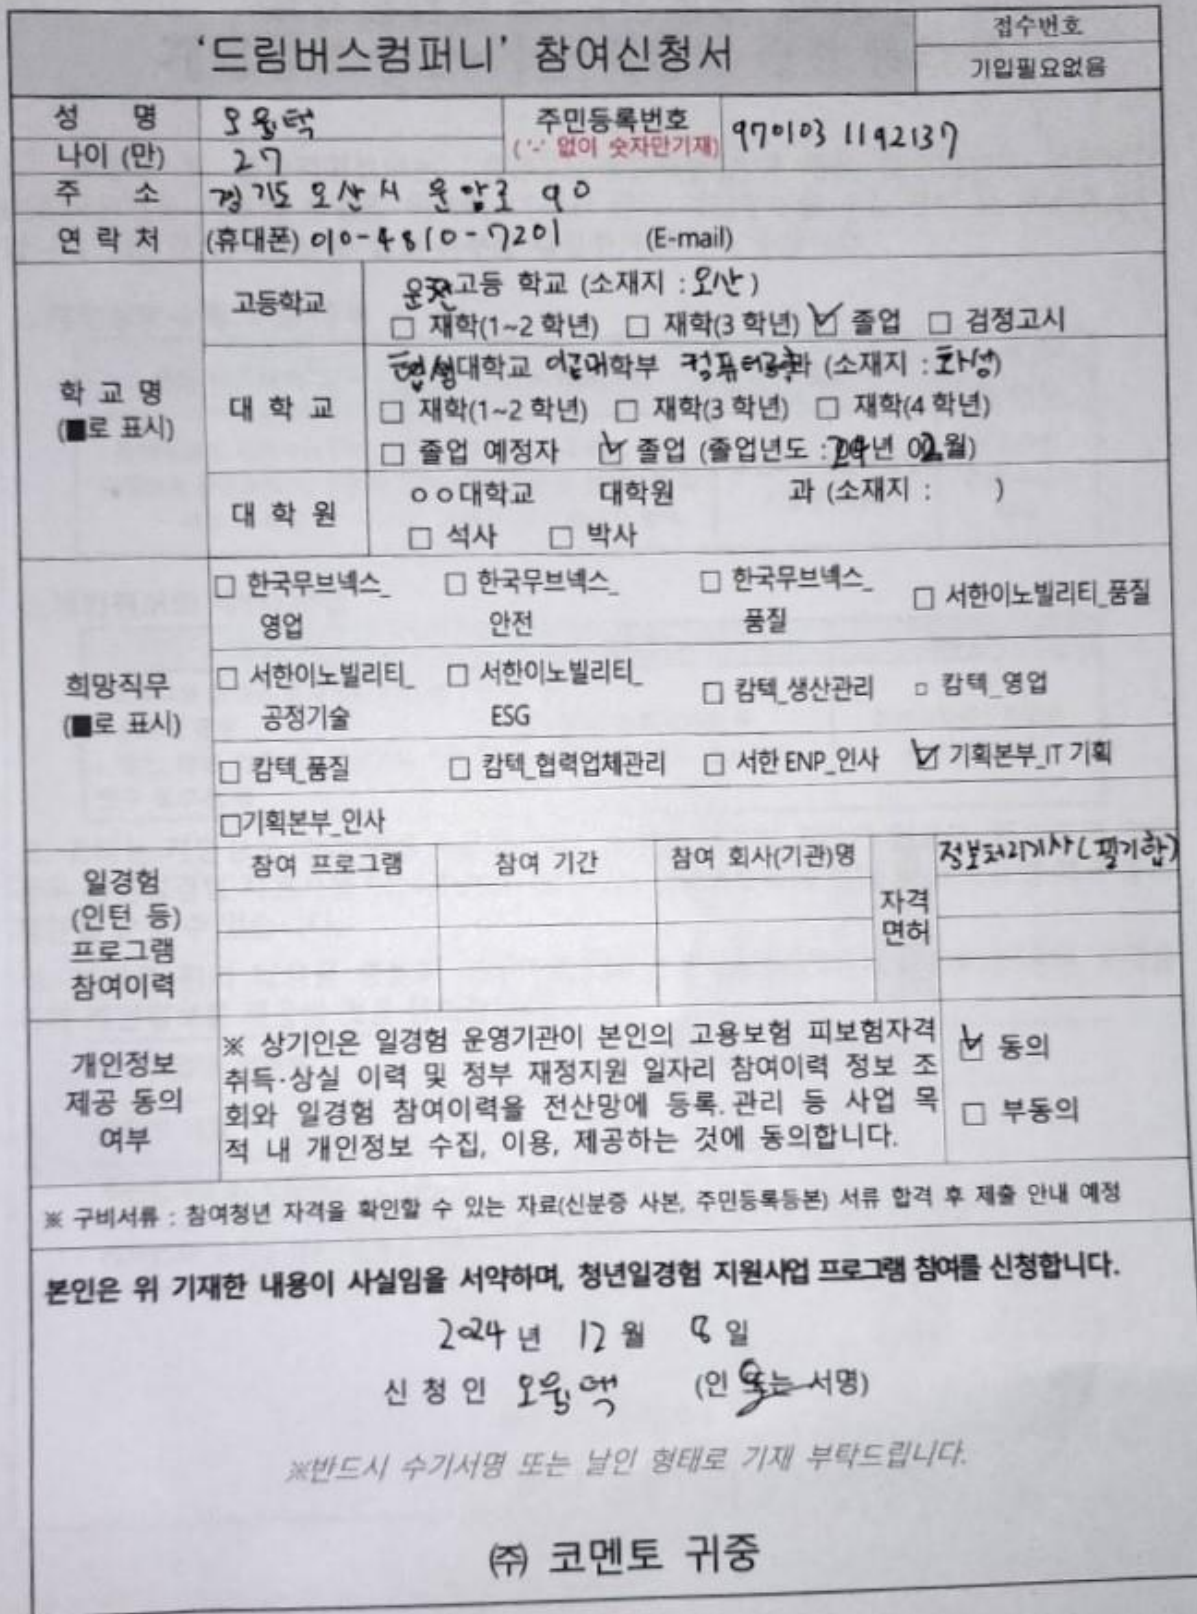 '드림버스컴퍼니' 참여신청서
접수번호
기입필요없음
성 명
주민등록번호
('-' 없이 숫자만기재)
970103 1192137
나이 (만) 27
주 소 경기도 오산시 운암로 90
연 락 처 (휴대폰) 010-4810-7201 (E-mail)
학 교 명
(■로 표시)
고등학교
고등 학교 (소재지 : 오산)
□ 재학(1~2 학년) □ 재학(3 학년) ☑ 졸업 □ 검정고시
대 학 교
대학교 이공대학부 컴퓨터공학과 (소재지 : 화성)
□ 재학(1~2 학년) □ 재학(3 학년) □ 재학(4 학년)
□ 졸업 예정자 ☑ 졸업 (졸업년도 : 24년 02월)
대 학 원
ㅇㅇ대학교 대학원 과 (소재지 : )
□ 석사 □ 박사
희망직무
(■로 표시)
□ 한국무브넥스_영업 □ 한국무브넥스_안전 □ 한국무브넥스_품질 □ 서한이노빌리티_품질
□ 서한이노빌리티_공정기술 □ 서한이노빌리티_ESG □ 캄텍_생산관리 □ 캄텍_영업
□ 캄텍_품질 □ 캄텍_협력업체관리 □ 서한 ENP_인사 ☑ 기획본부_IT 기획
□기획본부_인사
일경험
(인턴 등)
프로그램
참여이력
참여 프로그램 참여 기간 참여 회사(기관)명
자격
면허
정보처리기사(필기합)
개인정보
제공 동의
여부
※ 상기인은 일경험 운영기관이 본인의 고용보험 피보험자격
취득·상실 이력 및 정부 재정지원 일자리 참여이력 정보 조
회와 일경험 참여이력을 전산망에 등록.관리 등 사업 목
적 내 개인정보 수집, 이용, 제공하는 것에 동의합니다.
☑ 동의
□ 부동의
※ 구비서류 : 참여청년 자격을 확인할 수 있는 자료(신분증 사본, 주민등록등본) 서류 합격 후 제출 안내 예정
본인은 위 기재한 내용이 사실임을 서약하며, 청년일경험 지원사업 프로그램 참여를 신청합니다.
2024 년 12 월 8 일
신 청 인 (인 또는 서명)
※반드시 수기서명 또는 날인 형태로 기재 부탁드립니다.
㈜ 코멘토 귀중